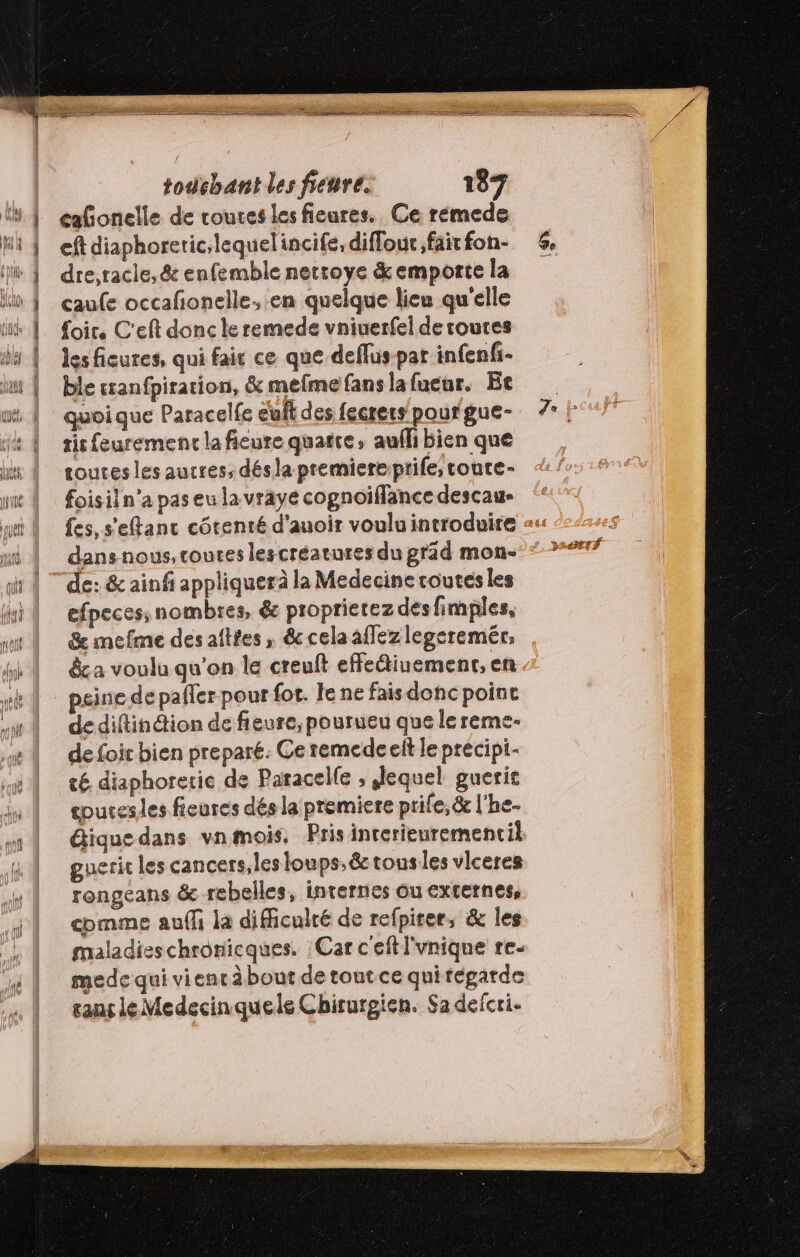 touchant les fieure. 187
casionelle de toutes les fieures. Ce remede
eſt diaphoretic, lequel inciſe, diſſout, fait fon- 6.
dre, racle, & enſemble nettoye & emporte la
cauſe occaſionelle, en quelque lieu qu'elle
ſoit. C'eſt donc le remede vniuerſel de toutes
les fieures, qui fait ce que deſſus par inſenſi-
ble tranſpiration, & meſme ſans la ſueur. Et
quoique Paracelſe euſt des ſecrets pour gue- 7.
rir ſeurement la fieure quatte, auſſi bien que
toutes les autres, dés la premiere priſe, toute-
foisil n'a pas eu la vraye cognoiſſance des cau-
ſes, s'eſtant cõtenté d'auoir voulu introduire
dans nous, toutes les creatures du grãd mon-
de: & ainſi appliquerà la Medecine toutes les
eſpeces, nombres, & proprietez des ſimples,
& meſme des aſtres, & cela aſſez legeremẽt,
& a voulu qu'on le creuſt effectiuement, en
peine de paſſer pour ſot. Ie ne fais donc point
de diſtinction de fieure, pourueu que le reme-
de ſoit bien preparé. Ce remede eſt le precipi-
té diaphoretic de Paracelſe, lequel guerit
toutes les fieures dés la premiere priſe, & l'he-
ctique dans vn mois. Pris interieurement il
guerit les cancers, les loups, & tous les vlceres
rongeans & rebelles, internes ou externes,
comme auſſi la difficulté de reſpirer, & les
maladies chronicques. Car c'eſt l'vnique re-
mede qui vient à bout de tout ce qui regarde
tant le Medecin que le Chirurgien. Sa deſcri-